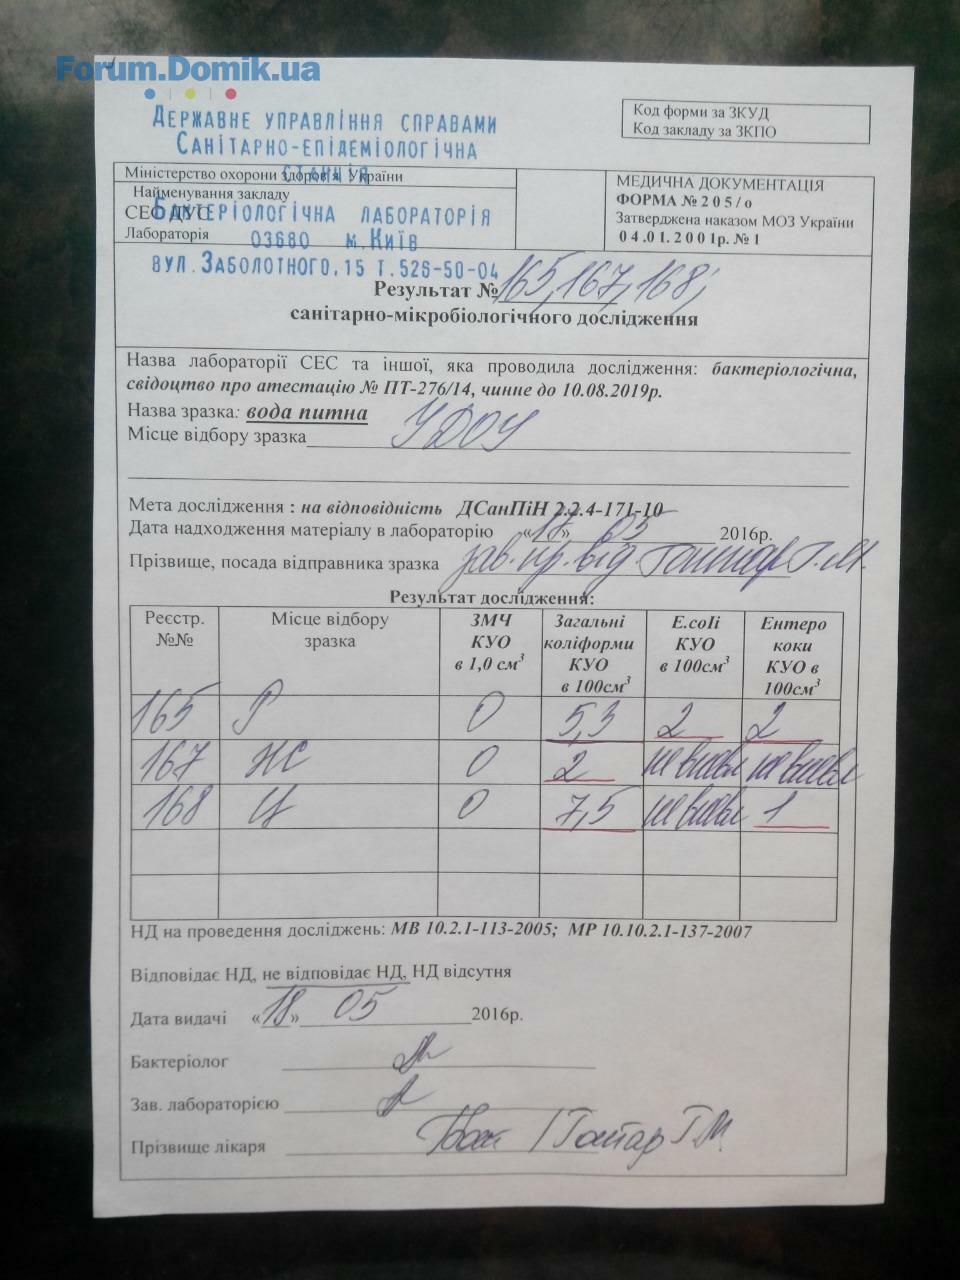 Forum.Domik.ua
ДЕРЖАВНЕ УПРАВЛІННЯ СПРАВАМИ
САНІТАРНО-ЕПІДЕМІОЛОГІЧНА
СТАНЦІЯ
БАКТЕРІОЛОГІЧНА ЛАБОРАТОРІЯ
03680 м.КИЇВ
ВУЛ.ЗАБОЛОТНОГО,15 Т.526-50-04
Код форми за ЗКУД
Код закладу за ЗКПО
Міністерство охорони здоров'я України
Найменування закладу
СЕС ДУС
Лабораторія
МЕДИЧНА ДОКУМЕНТАЦІЯ
ФОРМА № 2 0 5 / о
Затверджена наказом МОЗ України
0 4 .0 1. 2 0 0 1р. № 1
Результат № 165, 167, 168,
санітарно-мікробіологічного дослідження
Назва лабораторії СЕС та іншої, яка проводила дослідження: бактеріологічна,
свідоцтво про атестацію № ПТ-276/14, чинне до 10.08.2019р.
Назва зразка: вода питна
Місце відбору зразка УДОУ
Мета дослідження : на відповідність ДСанПіН 2.2.4-171-10
Дата надходження матеріалу в лабораторію «17» 05 2016р.
Прізвище, посада відправника зразка зав. пр. від. Гончар Г.М.
Результат дослідження:
Реєстр. №№ Місце відбору зразка ЗМЧ КУО в 1,0 см³ Загальні коліформи КУО в 100см³ E.coli КУО в 100см³ Ентеро коки КУО в 100см³
165 Р 0 5,3 2 2
167 НС 0 2 не виявл не виявл
168 Ц 0 7,5 не виявл 1
НД на проведення досліджень: МВ 10.2.1-113-2005; МР 10.10.2.1-137-2007
Відповідає НД, не відповідає НД, НД відсутня
Дата видачі «18» 05 2016р.
Бактеріолог
Зав. лабораторією
Прізвище лікаря Гончар Г М